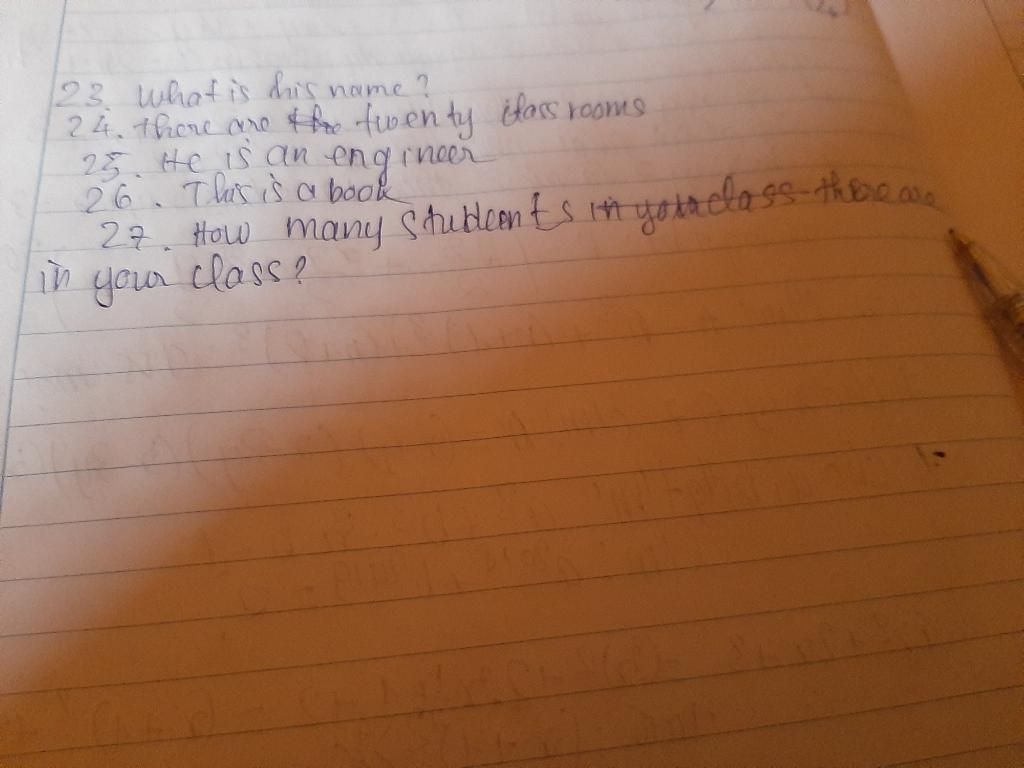 23. What is his name?
24. there are the twenty class rooms
25. He is an engineer
26. This is a book
27. How many students in your class there are
in your class?